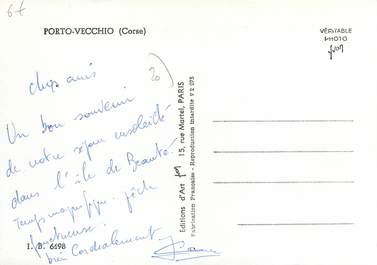 67
PORTO-VECCHIO (Corse)
VÉRITABLE
PHOTO
yvon
Chers amis
20
Un bon souvenir
de notre séjour ensoleillé
dans l'île de Beauté.
Temps magnifique. pêche
fructueuse.
bien Cordialement
Editions d'Art yvon 15, rue Martel, PARIS
Fabrication Française - Reproduction interdite
I. B. 6198